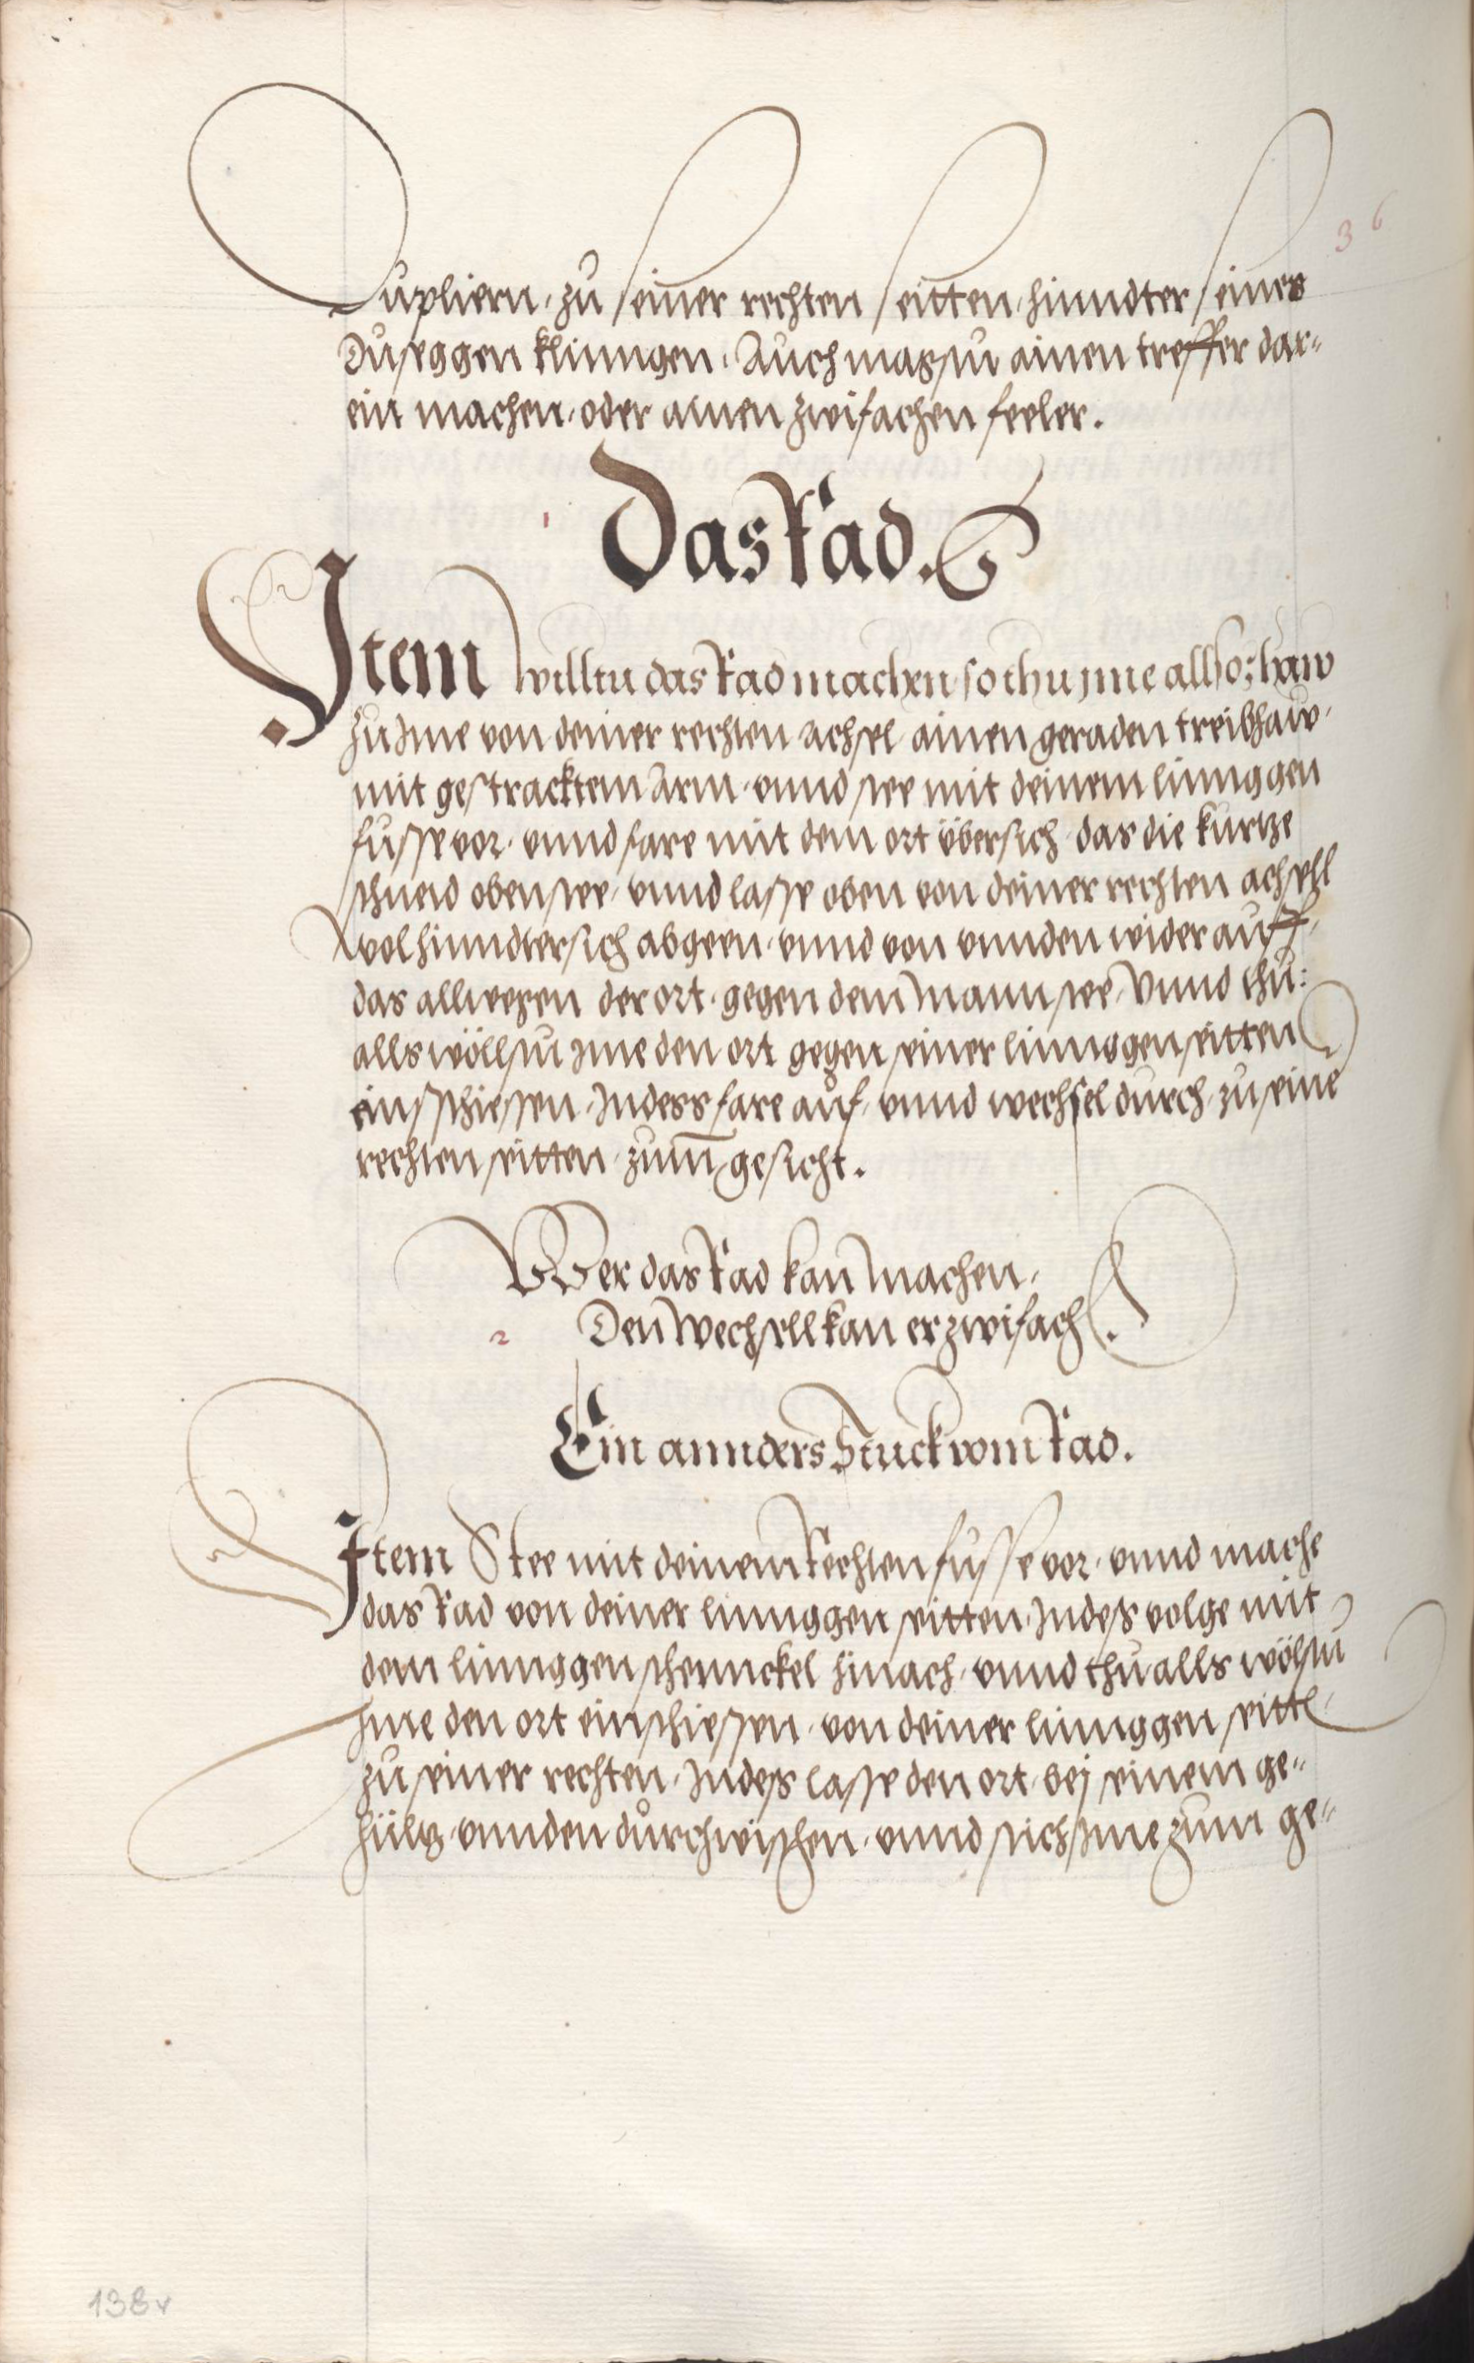 36
Dupliern, zu seiner rechten seitten, hinndter seines
Duseggen klinngen. Auch magstu ainen treffer dar=
ein machen, oder ainen zwifachen feeler.
Das Rad.
1
Item willtu das Rad machen, so thu jme allso: haw
zu Jme von deiner rechten achsel ainen geraden treibhaw,
mit gestracktem Arm, vnnd stee mit deinem linnggen
fusse vor, vnnd fare mit dem ort übersich, das die kurtze
schneid oben stee, vnnd lasse oben von deiner rechten achsell
wol hinndtersich abgeen, vnnd von vnnden wider auff,
das allwegen der ort, gegen dem Mann stee, Vnnd thu:
alls wöllstu Jme den ort gegen seiner linnggen seitten
einschiessen, Indess fare auf, vnnd wechsel durch, zu seine
rechten seitten, zum̄ gesicht.
Wer das Rad kan machen,
2 Den Wechsell kan er zwifach.
Ein annders Stuck vom Rad.
Item Stee mit deinem Rechten fusse vor, vnnd mache
das Rad von deiner linnggen seitten, Indess volge mit
dem linnggen schennckel hinach, vnnd thu alls wölstu
Jme den ort einschiessen, von deiner linnggen seitte
zu seiner rechten, Indess lasse den ort, bej seinem ge=
hültz, vnnden durchwischen, vnnd stich Jme zum ge=
138v